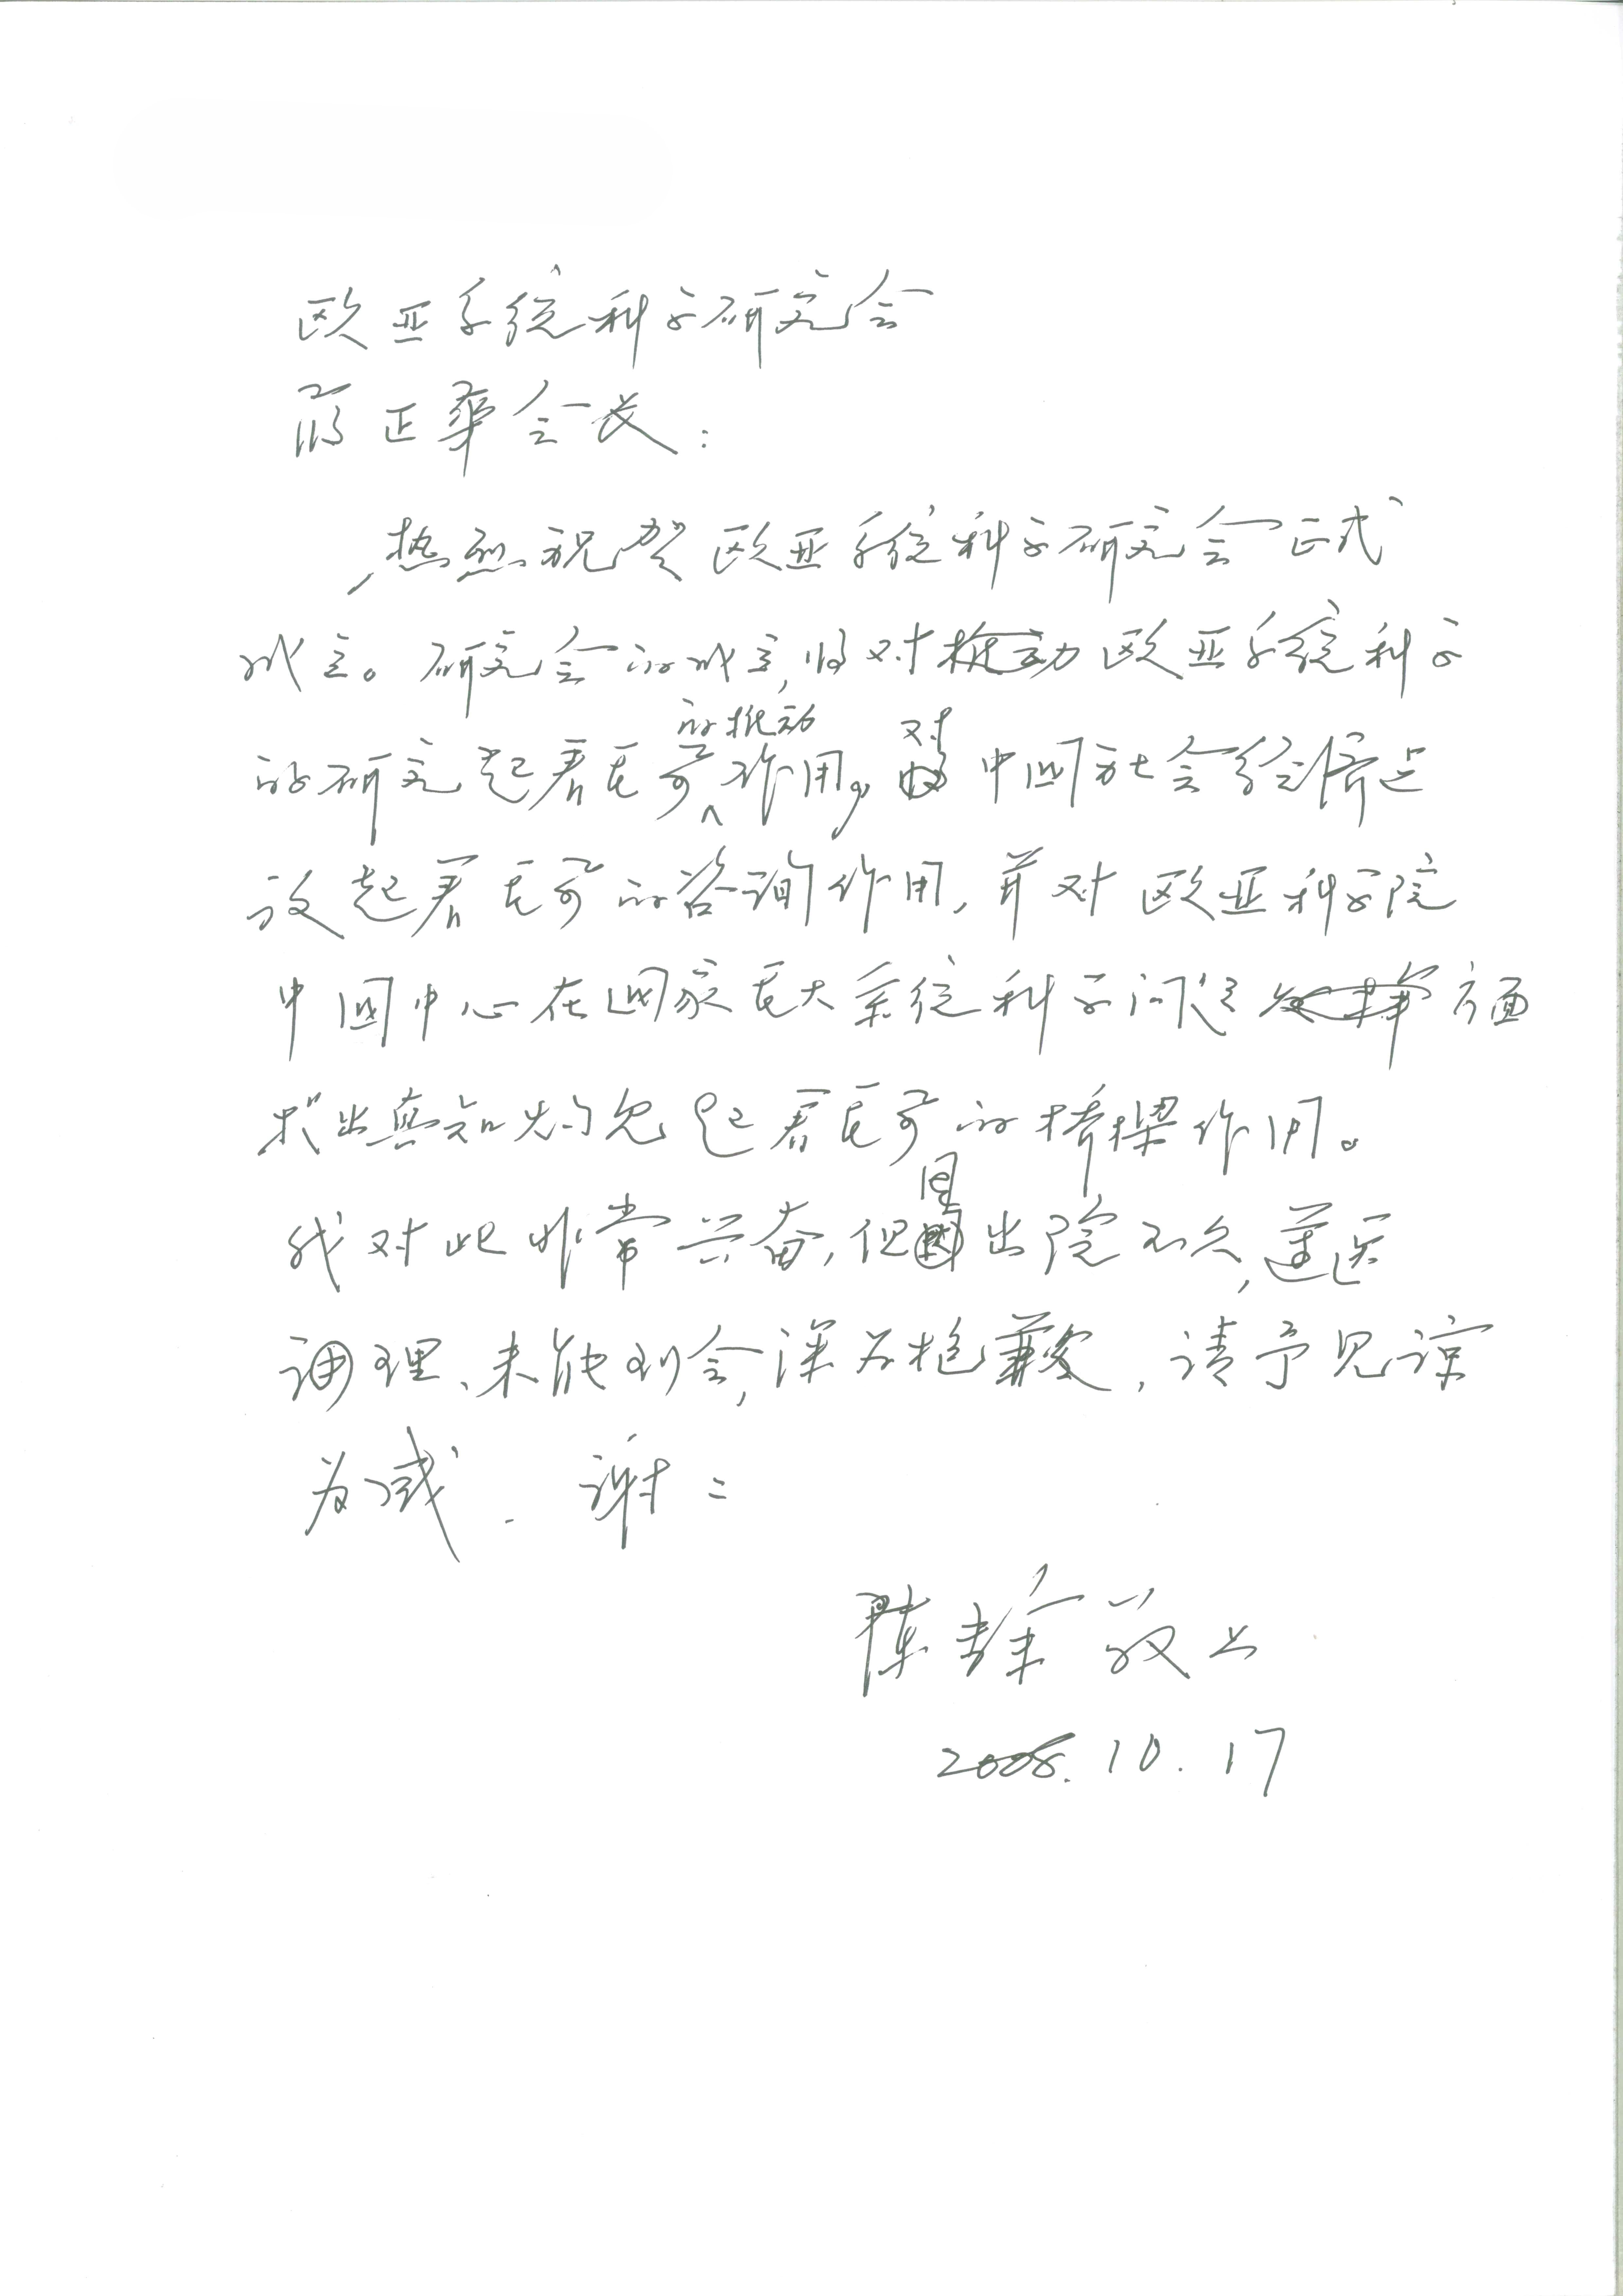 欧亚系统科学研究会
蒋正华会长：
热烈祝贺欧亚系统科学研究会正式
成立。研究会的成立，将对推动欧亚系统科学
的研究起着重要的推动作用，对中国社会经济建
设起着重要的咨询作用，并对欧亚科学院
中国中心在国家重大系统科学问题方面
求出真知灼见起着重要的桥梁作用。
我对此非常兴奋，但因出院不久，遵医
调理、未能到会，深为抱歉，请予见谅
为感．谢＝
陈 敬上
2008.10.17